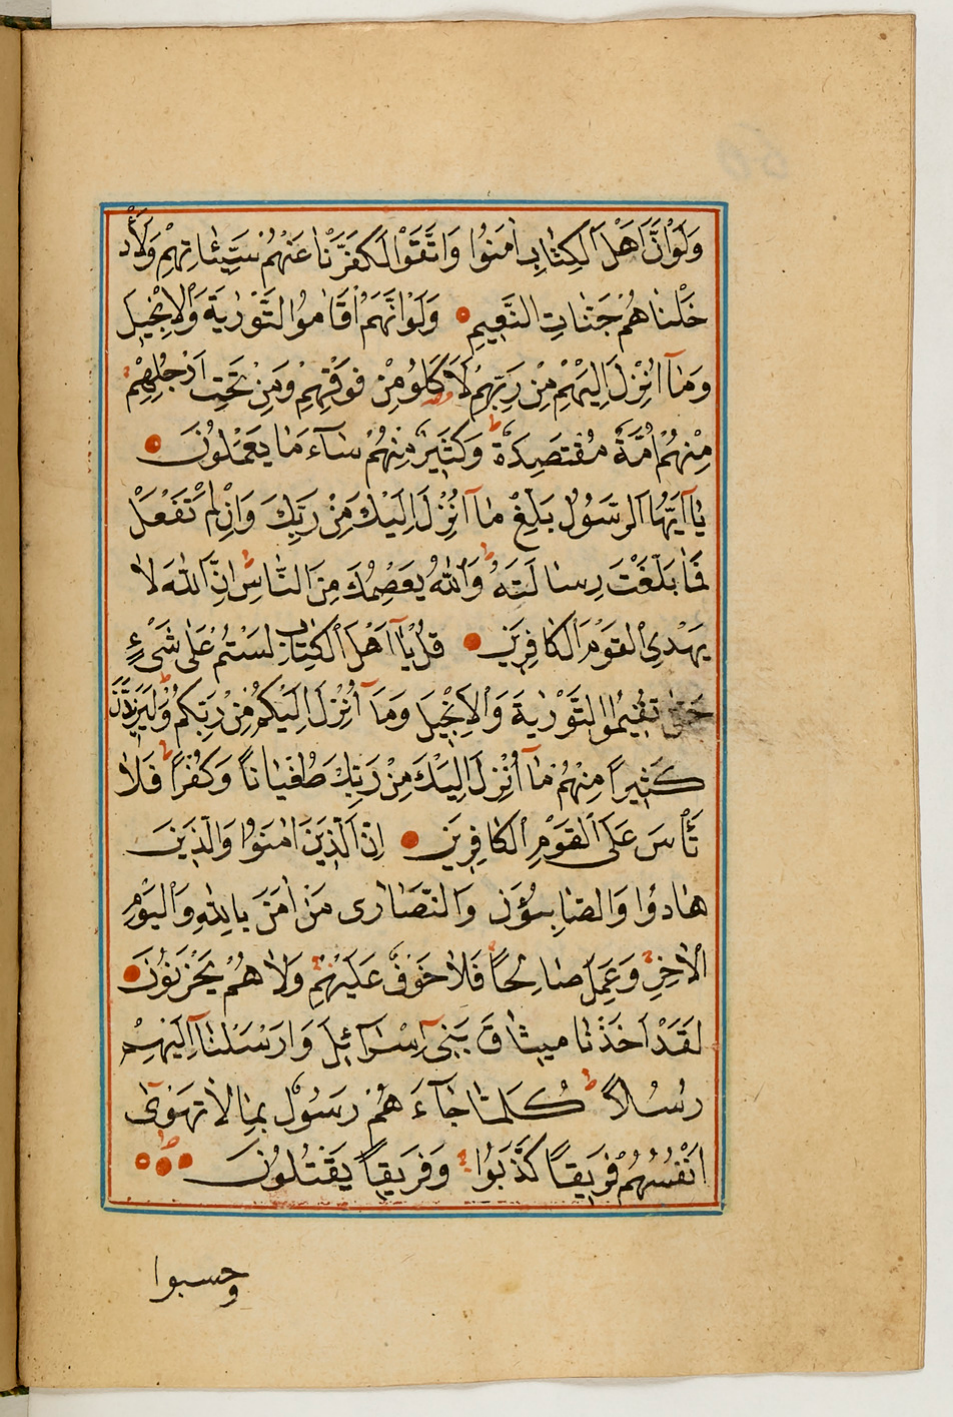 وَلَوْ اَنَّ اَهْلَ الْكِتَابِ اٰمَنُوا وَاتَّقَوْا لَكَفَّرْنَا عَنْهُمْ سَيِّئَاتِهِمْ وَلَاَدْ
خَلْنَاهُمْ جَنَّاتِ النَّعِيمِ وَلَوْ اَنَّهُمْ اَقَامُوا التَّوْرٰيةَ وَالْاِنْجِيلَ
وَمَآ اُنْزِلَ اِلَيْهِمْ مِنْ رَبِّهِمْ لَاَ كَلُو مِنْ فَوْقِهِمْ وَمِنْ تَحْتِ اَرْجُلِهِمْ
مِنْهُمْ اُمَّةٌ مُقْتَصِدَةٌ ط وَكَثِيرٌ مِنْهُمْ سَآءَ مَا يَعْمَلُونَ
يَآ اَيُّهَا الرَّسُولُ بَلِّغْ مَآ اُنْزِلَ اِلَيْكَ مِنْ رَبِّكَ وَاِنْ لَمْ تَفْعَلْ
فَمَا بَلَّغْتَ رِسَالَتَهُ ط وَاللّٰهُ يَعْصِمُكَ مِنَ النَّاسِ ط اِنَّ اللّٰهَ لَا
يَهْدِي الْقَوْمَ الْكَافِرِينَ قُلْ يَآ اَهْلَ الْكِتَابِ لَسْتُمْ عَلٰى شَيْءٍ
حَتّٰى تُقِيمُوا التَّوْرٰيةَ وَالْاِنْجِيلَ وَمَآ اُنْزِلَ اِلَيْكُمْ مِنْ رَبِّكُمْ ط وَلَيَزِيدَنَّ
كَثِيرًا مِنْهُمْ مَآ اُنْزِلَ اِلَيْكَ مِنْ رَبِّكَ طُغْيَانًا وَكُفْرًا ط فَلَا
تَأْسَ عَلَى الْقَوْمِ الْكَافِرِينَ اِنَّ الَّذِينَ اٰمَنُوا وَالَّذِينَ
هَادُوا وَالصَّابِؤُنَ وَالنَّصَارٰى مَنْ اٰمَنَ بِاللّٰهِ وَالْيَوْمِ
الْاٰخِرِ وَعَمِلَ صَالِحًا فَلَا خَوْفٌ عَلَيْهِمْ وَلَا هُمْ يَحْزَنُونَ
لَقَدْ اَخَذْنَا مِيثَاقَ بَنِيٓ اِسْرَآئِلَ وَاَرْسَلْنَآ اِلَيْهِمْ
رُسُلًا ط كُلَّمَا جَآءَ هُمْ رَسُولٌ بِمَا لَا تَهْوٰىٓ
اَنْفُسُهُمْ فَرِيقًا كَذَّبُوا وَفَرِيقًا يَقْتُلُونَ
وحسبوا